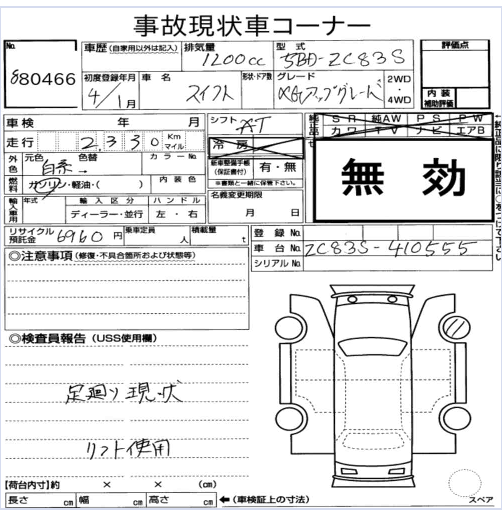 事故現状車コーナー
No.
680466
車歴 (自家用以外は記入)
排気量
1200cc
型式
5BD-ZC83S
評価点
初度登録年月
4/1月
車名
スイフト
形状・ドア数
グレード
XGアップグレード
2WD
・
4WD
内装
補助評価
車検 年 月
走行 2,330 Km
マイル
シフト
AT
冷房
純正品 SR 純AW PS PW
カワ TV ナビ エアB
無効
外色
元色 色替
白系→
カラーNo.
燃料
ガソリン・軽油・( )
内装色
新車整備手帳
(保証書付)
有・無
※書類と一緒に保管下さい。
輸入車用
年式
輸入区分
ディーラー・並行
ハンドル
左・右
名義変更期限
月 日
リサイクル
預託金
6960円
乗車定員
人
積載量
t
登録No.
車台No. ZC83S-410555
シリアルNo.
◎注意事項 (修復・不具合箇所および状態等)
◎検査員報告 (USS使用欄)
足廻り現状
リフト使用
【荷台内寸】約 × × (cm)
長さ cm 幅 cm 高さ cm
←(車検証上の寸法)
スペア